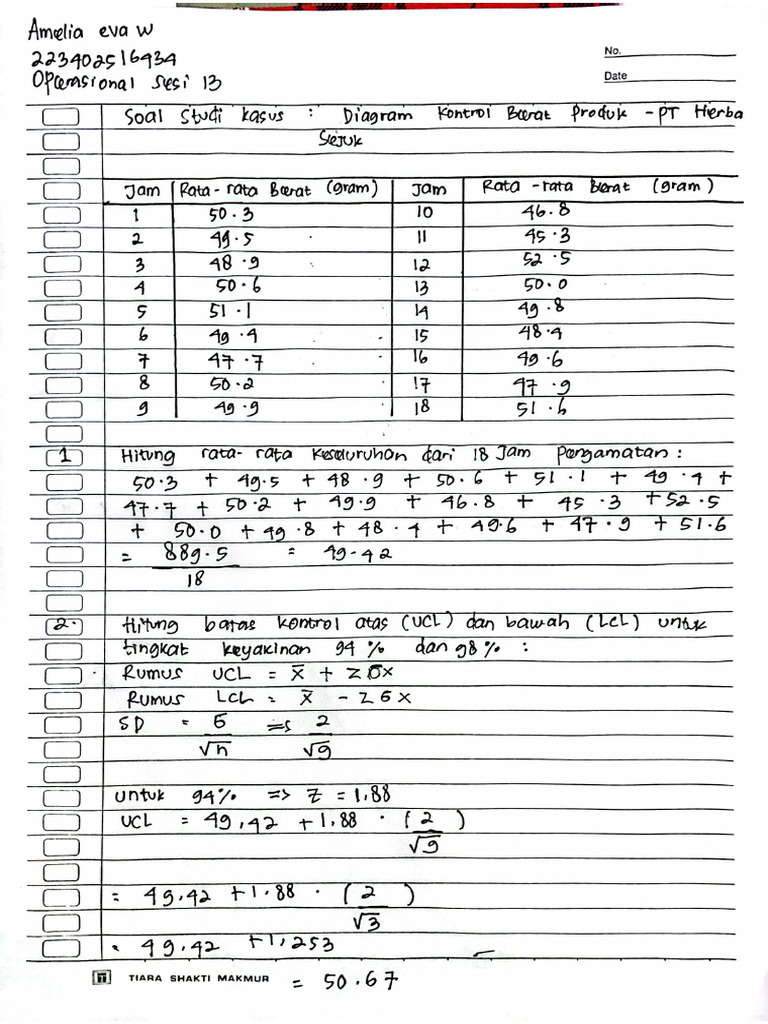 Amelia eva w
223402516434
Operasional Sesi 13
No.
Date
Soal Studi Kasus : Diagram Kontrol Berat Produk - PT Herba
Sejuk
Jam Rata-rata Berat (gram) Jam Rata-rata Berat (gram)
1 50.3 10 46.8
2 49.5 11 45.3
3 48.9 12 52.5
4 50.6 13 50.0
5 51.1 14 49.8
6 49.4 15 48.4
7 47.7 16 49.6
8 50.2 17 47.9
9 49.9 18 51.6
1 Hitung rata-rata keseluruhan dari 18 Jam pengamatan :
50.3 + 49.5 + 48.9 + 50.6 + 51.1 + 49.4 +
47.7 + 50.2 + 49.9 + 46.8 + 45.3 + 52.5
+ 50.0 + 49.8 + 48.4 + 49.6 + 47.9 + 51.6
= 889.5 = 49.42
18
2. Hitung batas kontrol atas (UCL) dan bawah (LCL) untuk
tingkat keyakinan 94% dan 98% :
Rumus UCL = x̄ + zσx
Rumus LCL = x̄ - zσx
SD = σ => 2
√n √9
untuk 94% => z = 1.88
UCL = 49,42 + 1.88 . (2)
√9
= 49,42 + 1.88 . (2)
√3
= 49,42 + 1,253
TIARA SHAKTI MAKMUR = 50.67